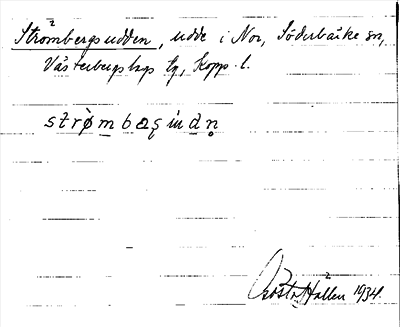 Strömbergsudden, udde i Nor, Söderbärke sn,
Västerbergslags tg, Kopp. l.
strø̀mbaʂùdn̥
Gösta Hallén 1934.